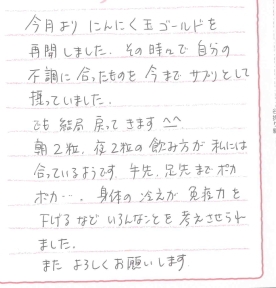 今月より にんにく玉ゴールドを
再開しました. その時々で 自分の
不調に 合ったものを 今まで サプリとして
摂っていました.
でも 結局 戻って きます ^^
朝2粒, 夜2粒の 飲み方が 私には
合っているようです. 手先, 足先まで ポカ
ポカ…. 身体の 冷えが 免疫力を
下げる など いろんなことを 考えさせられ
ました.
また よろしくお願いします